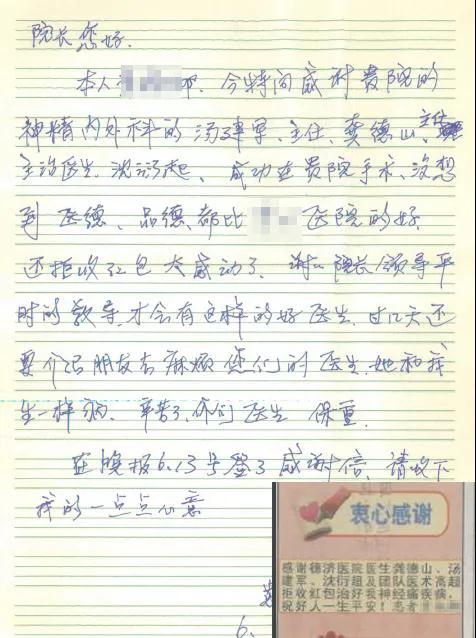 院长您好.
本人 邓、今特向感谢贵院的
神精内外科的汤建军、主任、龚德山、主任
主治医生、沈衍超、成功在贵院手术、没想
到医德、品德、都比 医院的好
还拒收红包太感动了、谢谢院长领导平
时的教导,才会有这样的好医生、过几天还
要介绍朋友去麻烦您们的医生、她和我
生一样病、辛苦了、你们医生 保重.
在晚报6.13号登了感谢信、请收下
我的一点点心意
6.
衷心感谢
感谢德济医院医生龚德山、汤
建军、沈衍超及团队医术高超
拒收红包治好我神经痛疾病,
祝好人一生平安！患者